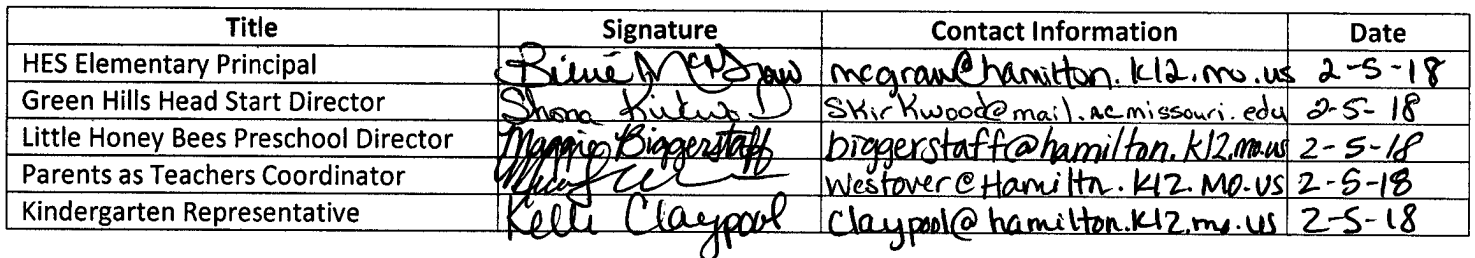 Title Signature Contact Information Date
HES Elementary Principal McGraw mcgraw@hamilton.k12.mo.us 2-5-18
Green Hills Head Start Director Shona Kirkwood skirkwood@mail.ncmissouri.edu 2-5-18
Little Honey Bees Preschool Director Maggie Biggerstaff biggerstaff@hamilton.k12.mo.us 2-5-18
Parents as Teachers Coordinator Westover@Hamiltn.K12.MO.US 2-5-18
Kindergarten Representative Kelli Claypool Claypool@hamilton.k12.mo.us 2-5-18